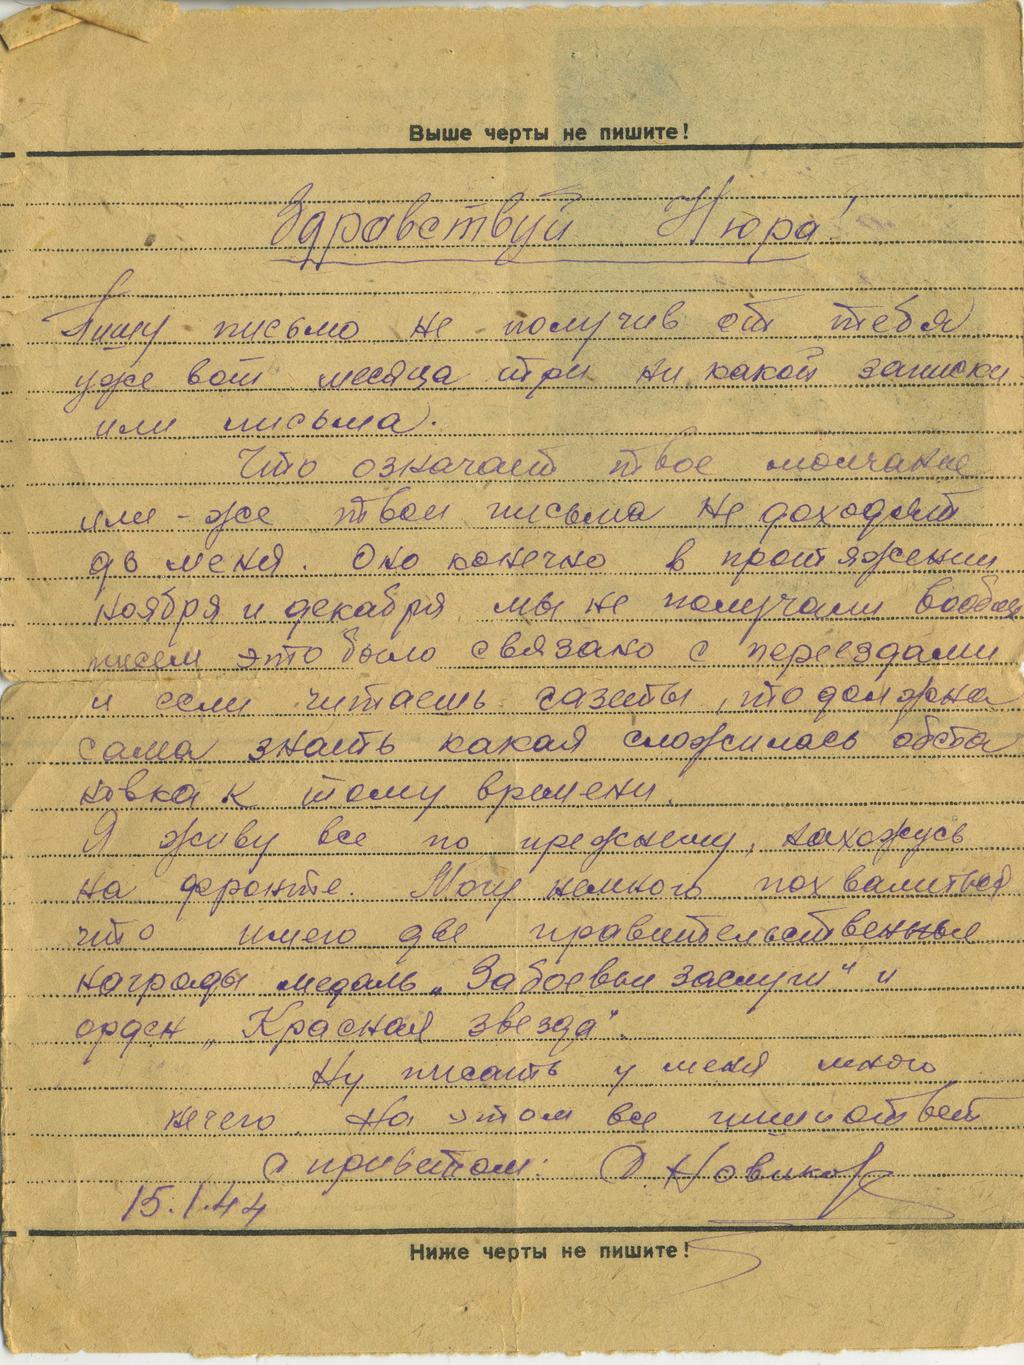 Выше черты не пишите!
Здравствуй Нюра!
Пишу письмо не получив от тебя
уже вот месяца три ни какой записки
или письма.
Что означает твое молчание
или-же твои письма не доходят
до меня. Оно конечно в протяжении
ноября и декабря мы не получали вообще
писем это было связано с переездами
и если читаешь газеты, то должна
сама знать какая сложилась обста
новка к тому времени.
Я живу все по прежнему, нахожусь
на фронте. Могу немного похвалиться
что имею две правительственные
награды медаль „За боевые заслуги“ и
орден „Красная звезда“.
Ну писать у меня много
нечего. На этом все пиши ответ
с приветом: Новиков
15.1.44
Ниже черты не пишите!